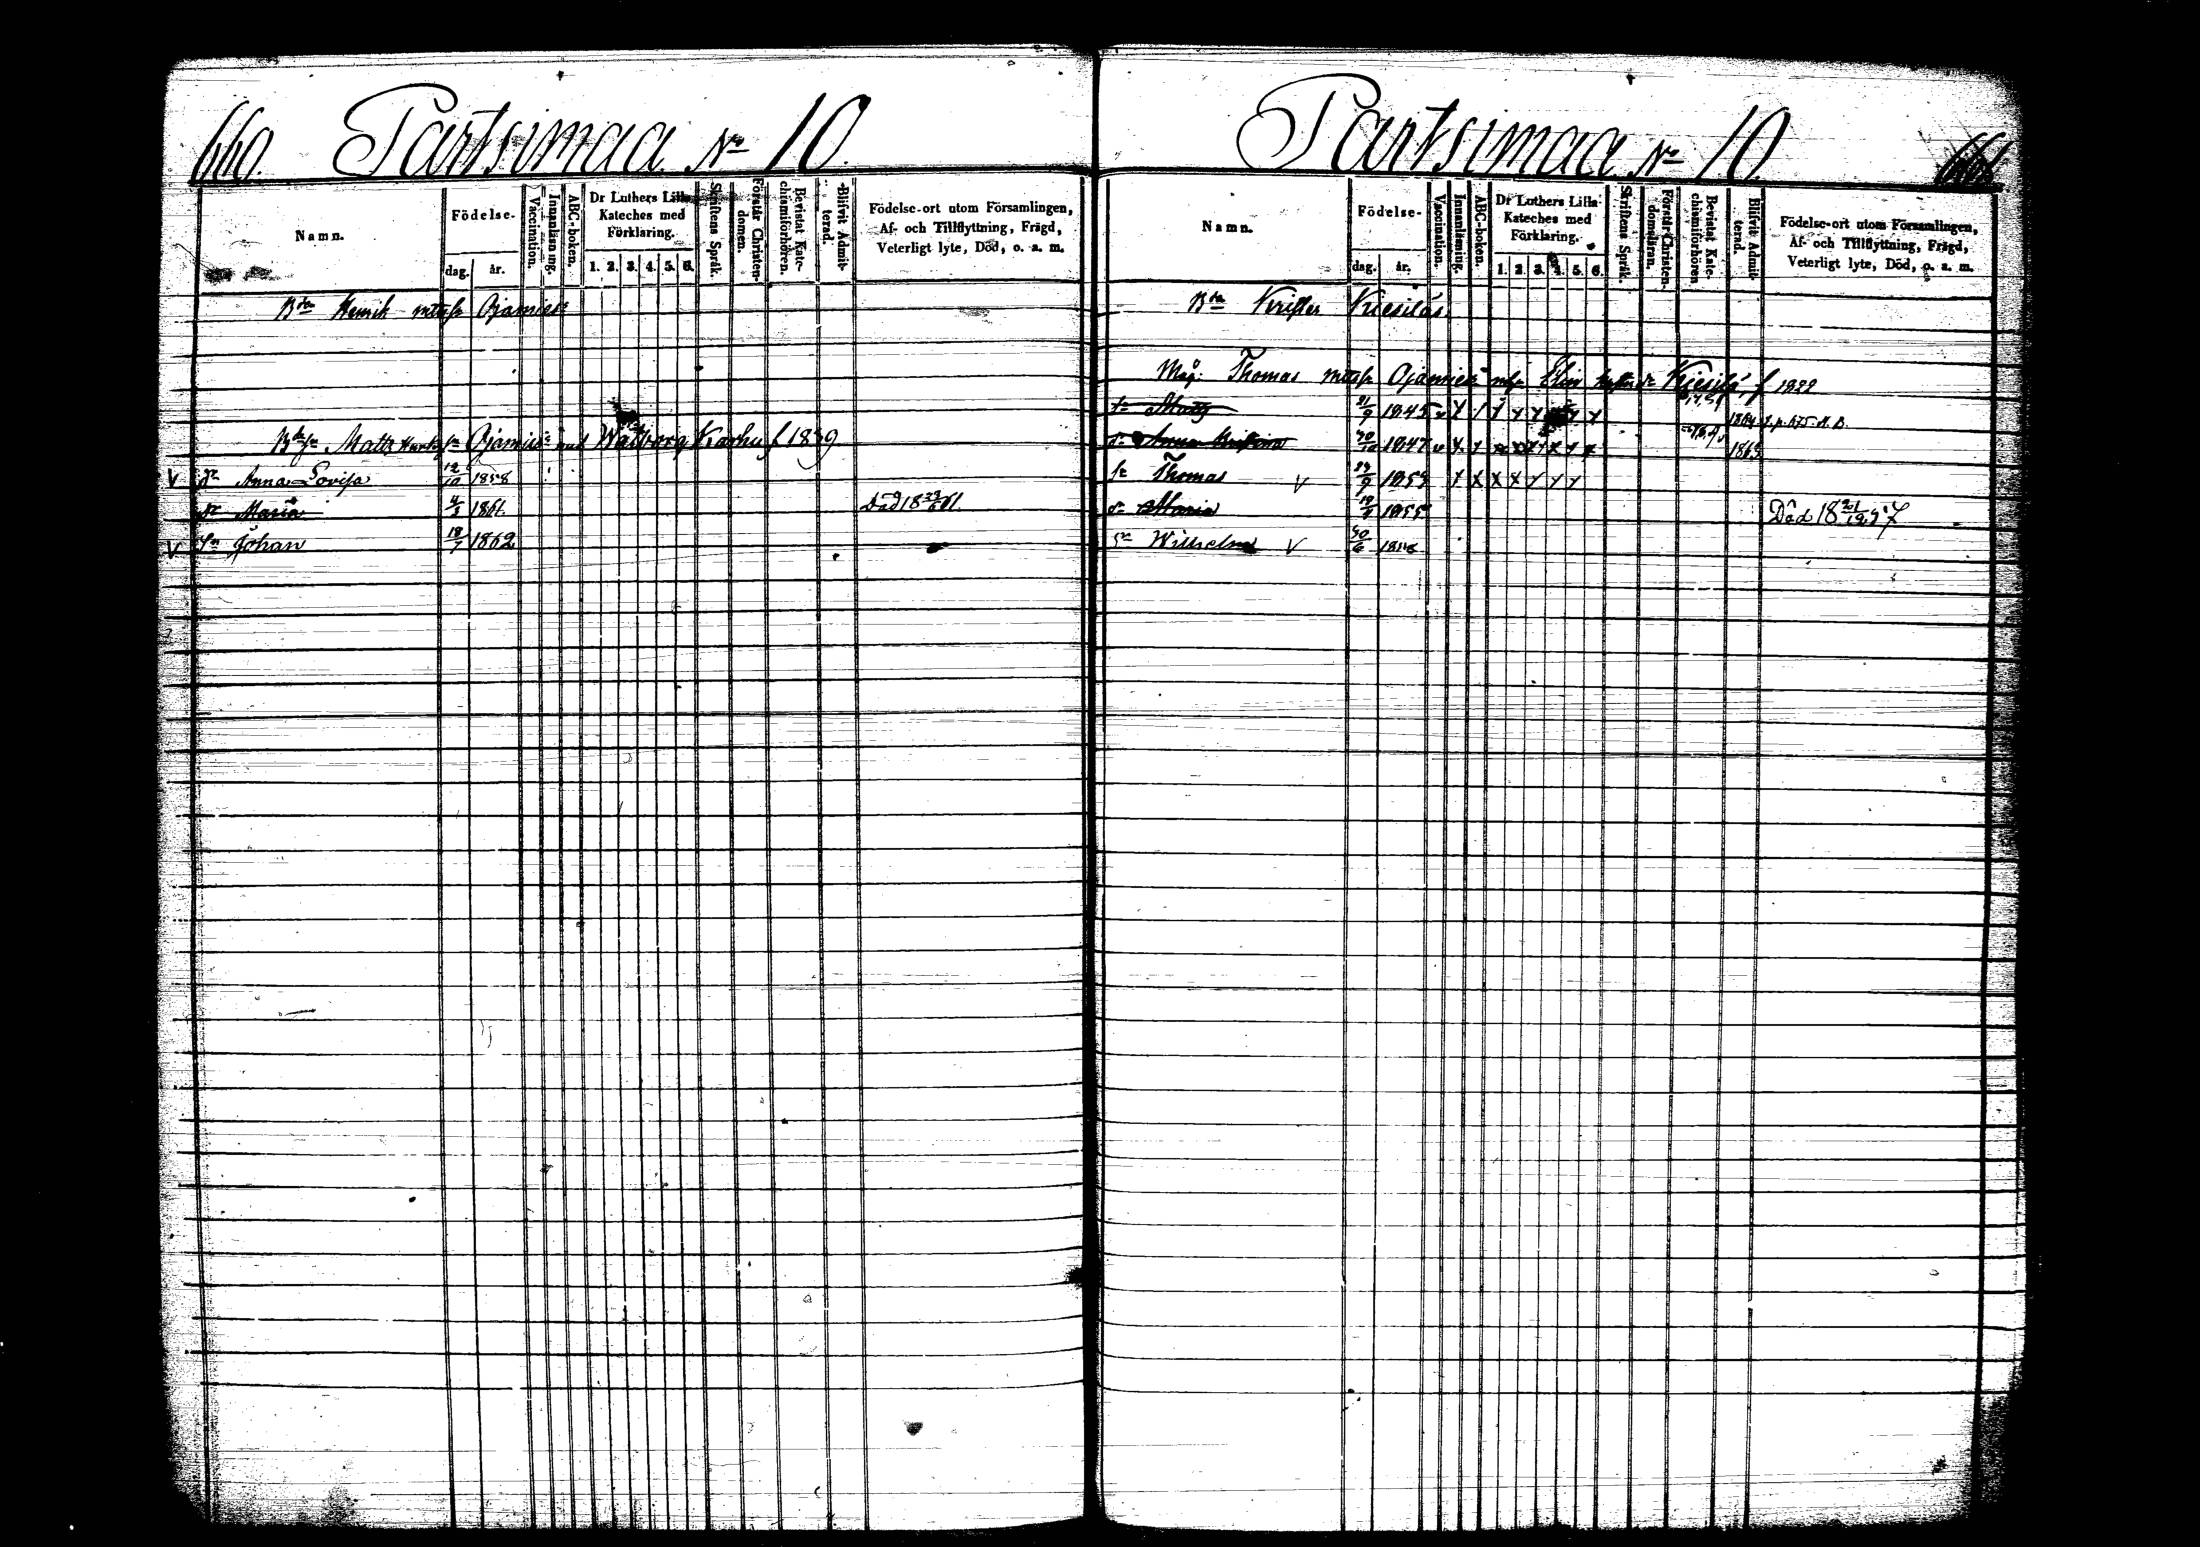 660. Partsimaa No 10.
Namn.
Födelse-
dag. år.
Vaccination.
Innanläsning.
ABC-boken.
Dr Luthers Lilla Kateches med Förklaring.
1. 2. 3. 4. 5. 6.
Skriftens Språk.
Förstår Christendomen.
Bevistat Katechismiförhören.
Blifvit Admitterad.
Födelse-ort utom Församlingen,
Af- och Tillflyttning, Frägd,
Veterligt lyte, Död, o. a. m.
Bde Henrik Ojamies
Matts Ojamies Walborg Karhu f 1839
V dr Anna Lovisa 12/10 1858
dr Maria 1861. Död 18 61.
V Sn Johan 18/7 1862
Partsimaa No 10. 661.
Namn.
Födelse-
dag. år.
Vaccination.
Innanläsning.
ABC-boken.
Dr Luthers Lilla Kateches med Förklaring.
1. 2. 3. 4. 5. 6.
Skriftens Språk.
Förstår Christendomsläran.
Bevistat Katechismiförhören
Blifvit Admitterad.
Födelse-ort utom Församlingen,
Af- och Tillflyttning, Frägd,
Veterligt lyte, Död, o. a. m.
Bde Krister Kiesiläs.
Måg: Thomas Ojamies Elin Kiesilä, f 1822
Matts 21/9 1845 1864
Anna Kristina 1847 1863
Thomas V 1853
dr Maria 1855 Död 18 57
Sn Wilhelm V 30/6 1858